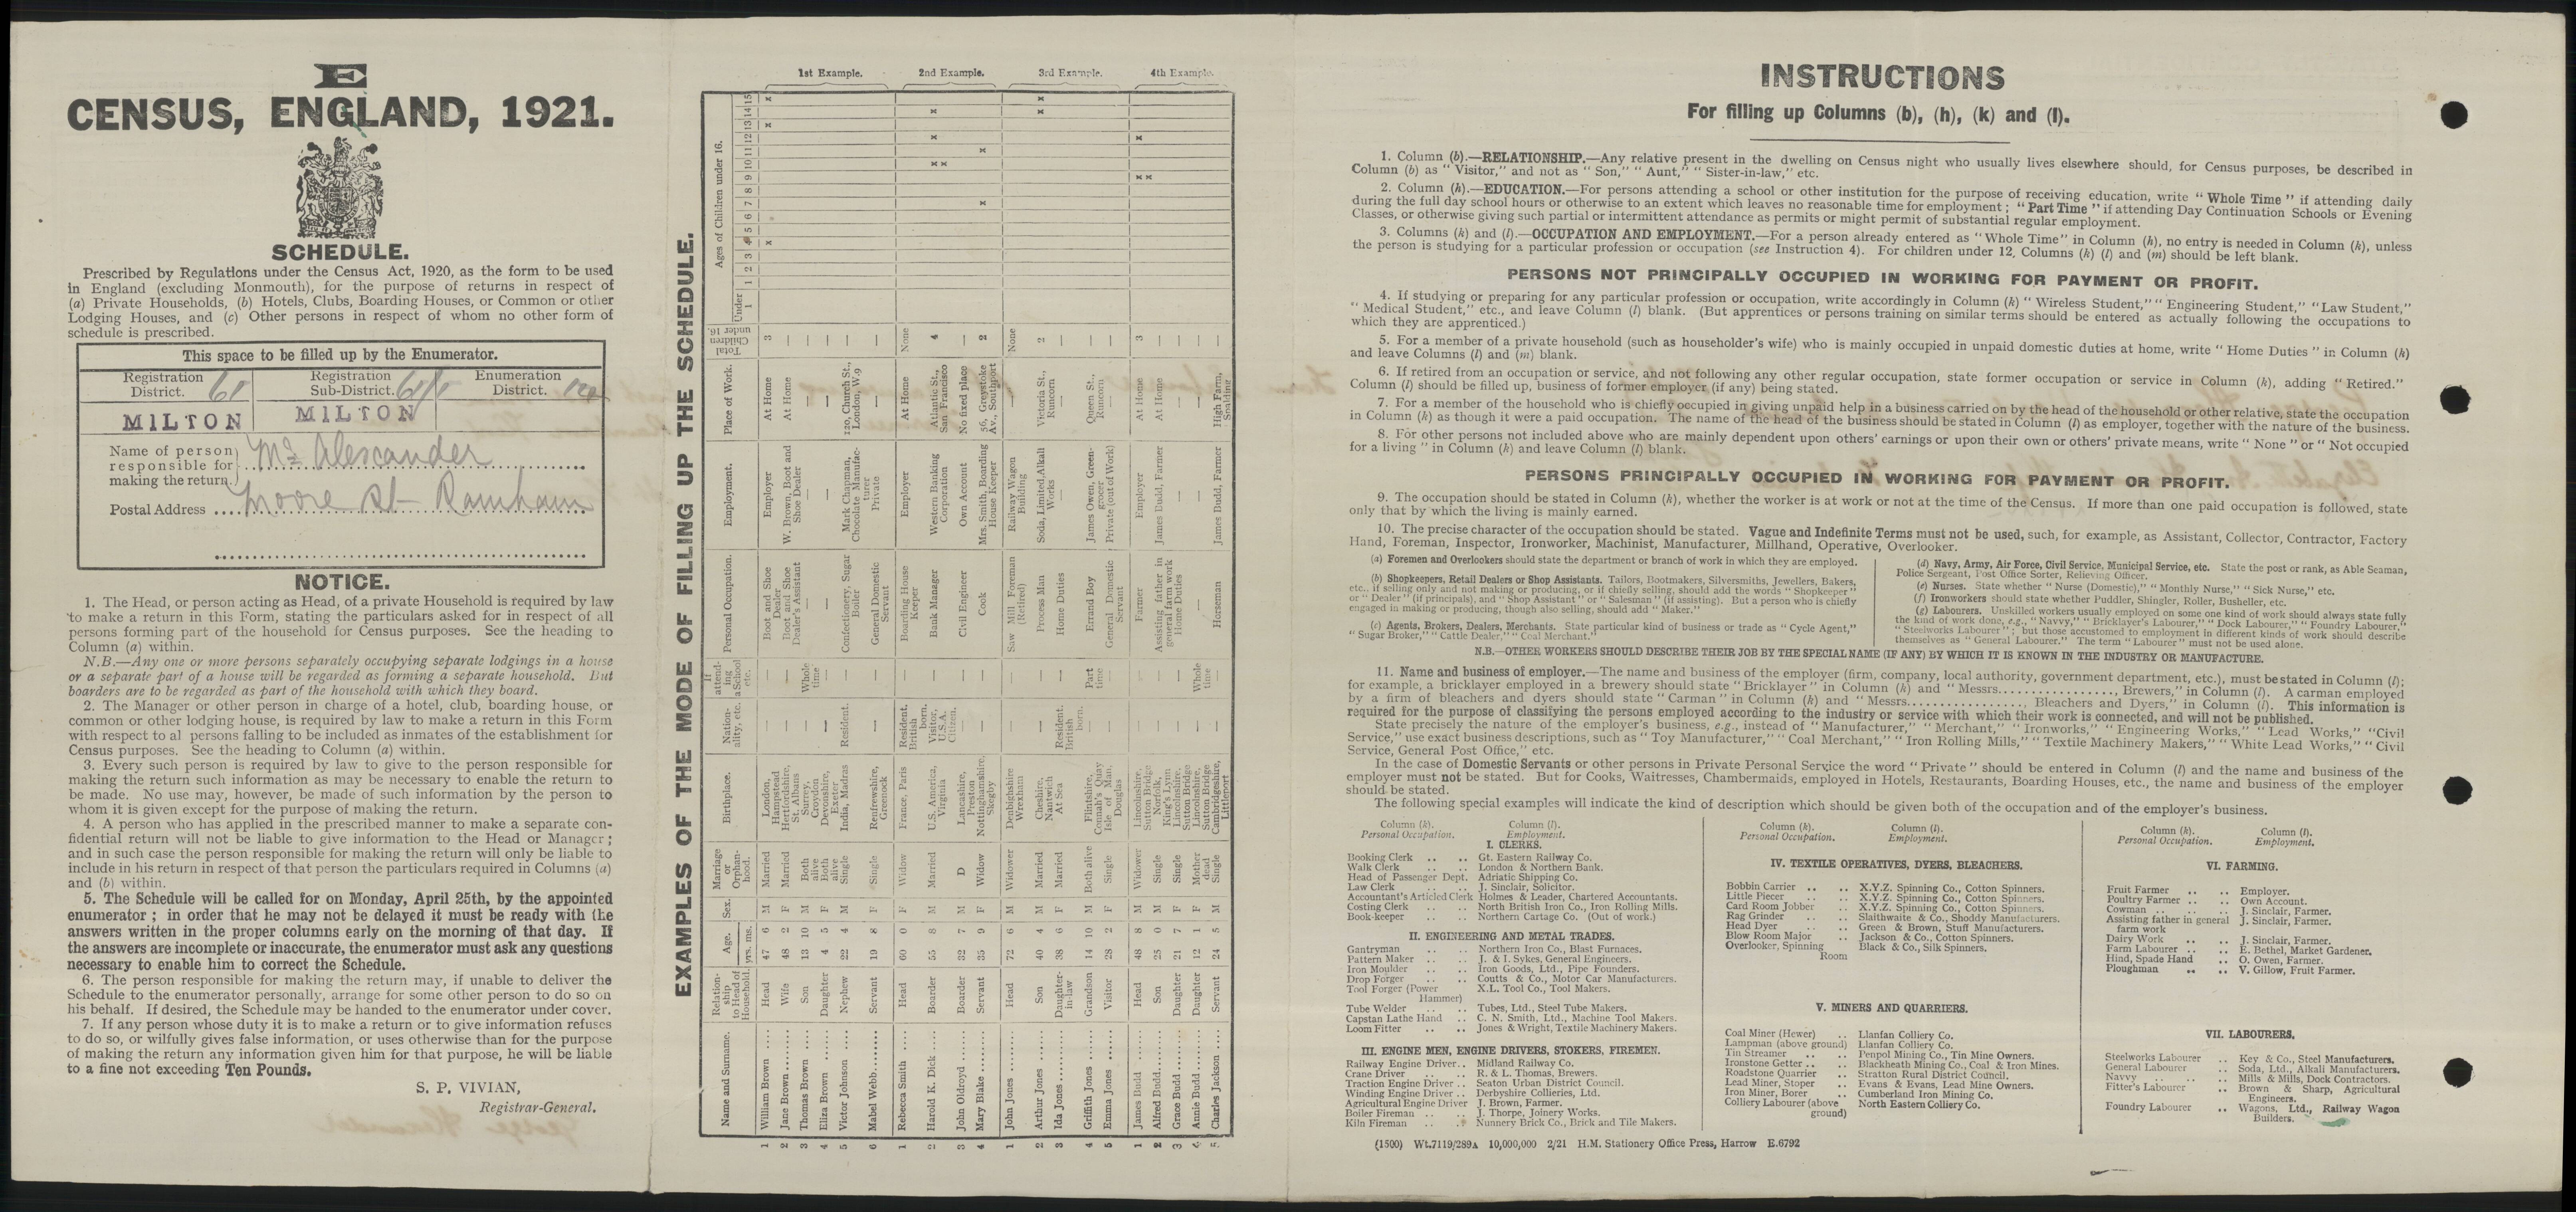 E
CENSUS, ENGLAND, 1921.
SCHEDULE.
Prescribed by Regulations under the Census Act, 1920, as the form to be used
in England (excluding Monmouth), for the purpose of returns in respect of
(a) Private Households, (b) Hotels, Clubs, Boarding Houses, or Common or other
Lodging Houses, and (c) Other persons in respect of whom no other form of
schedule is prescribed.
This space to be filled up by the Enumerator.
Registration District. 61
Registration Sub-District. 61/1
Enumeration District.
MILTON
MILTON
Name of person responsible for making the return. Mr Alexander
Postal Address .... Moore St Rainham
NOTICE.
1. The Head, or person acting as Head, of a private Household is required by law
to make a return in this Form, stating the particulars asked for in respect of all
persons forming part of the household for Census purposes. See the heading to
Column (a) within.
N.B.—Any one or more persons separately occupying separate lodgings in a house
or a separate part of a house will be regarded as forming a separate household. But
boarders are to be regarded as part of the household with which they board.
2. The Manager or other person in charge of a hotel, club, boarding house, or
common or other lodging house, is required by law to make a return in this Form
with respect to al persons falling to be included as inmates of the establishment for
Census purposes. See the heading to Column (a) within.
3. Every such person is required by law to give to the person responsible for
making the return such information as may be necessary to enable the return to
be made. No use may, however, be made of such information by the person to
whom it is given except for the purpose of making the return.
4. A person who has applied in the prescribed manner to make a separate con-
fidential return will not be liable to give information to the Head or Manager;
and in such case the person responsible for making the return will only be liable to
include in his return in respect of that person the particulars required in Columns (a)
and (b) within.
5. The Schedule will be called for on Monday, April 25th, by the appointed
enumerator; in order that he may not be delayed it must be ready with the
answers written in the proper columns early on the morning of that day. If
the answers are incomplete or inaccurate, the enumerator must ask any questions
necessary to enable him to correct the Schedule.
6. The person responsible for making the return may, if unable to deliver the
Schedule to the enumerator personally, arrange for some other person to do so on
his behalf. If desired, the Schedule may be handed to the enumerator under cover.
7. If any person whose duty it is to make a return or to give information refuses
to do so, or wilfully gives false information, or uses otherwise than for the purpose
of making the return any information given him for that purpose, he will be liable
to a fine not exceeding Ten Pounds.
S. P. VIVIAN,
Registrar-General.
EXAMPLES OF THE MODE OF FILLING UP THE SCHEDULE.
Name and Surname. Relation-ship to Head of Household. Age. yrs. ms. Sex. Marriage or Orphan-hood. Birthplace. Nation-ality, etc. If attend-ing a School etc. Personal Occupation. Employment. Place of Work. Total Children under 16. Ages of Children under 16. Under 1 1 2 3 4 5 6 7 8 9 10 11 12 13 14 15
1st Example.
1 William Brown .... Head 47 6 M Married London, Hampstead — — Boot and Shoe Dealer Employer At Home 3 x x x
2 Jane Brown ....... Wife 48 2 F Married Hertfordshire, St. Albans — — Boot and Shoe Dealer's Assistant W. Brown, Boot and Shoe Dealer At Home —
3 Thomas Brown .... Son 13 10 M Both alive Surrey, Croydon — Whole time — — — —
4 Eliza Brown ...... Daughter 4 5 F Both alive Devonshire, Exeter — — — — — —
5 Victor Johnson .... Nephew 22 4 M Single India, Madras Resident. — Confectionery, Sugar Boiler Mark Chapman, Chocolate Manufac-turer 120, Church St., London, W.9 —
6 Mabel Webb....... Servant 19 8 F Single Renfrewshire, Greenock — — General Domestic Servant Private — —
2nd Example.
1 Rebecca Smith .... Head 60 0 F Widow France, Paris Resident. British born. — Boarding House Keeper Employer At Home None
2 Harold K. Dick .... Boarder 55 8 M Married U.S. America, Virginia Visitor, U.S.A. Citizen. — Bank Manager Western Banking Corporation Atlantic St., San Francisco 4 x x x x
3 John Oldroyd ...... Boarder 32 7 M D Lancashire, Preston — — Civil Engineer Own Account No fixed place —
4 Mary Blake ....... Servant 35 9 F Widow Nottinghamshire, Skegby — — Cook Mrs. Smith, Boarding House Keeper 56, Greystoke Av., Southport 2 x x
3rd Example.
1 John Jones ....... Head 72 6 M Widower Denbighshire Wrexham — — Saw Mill Foreman (Retired) Railway Wagon Building — None
2 Arthur Jones ...... Son 40 4 M Married Cheshire, Nantwich — — Process Man Soda, Limited, Alkali Works Victoria St., Runcorn 2 x x
3 Ida Jones ......... Daughter-in-law 38 6 F Married At Sea Resident. British born. — Home Duties — — —
4 Griffith Jones ..... Grandson 14 10 M Both alive Flintshire, Connah's Quay — Part time Errand Boy James Owen, Green-grocer Queen St., Runcorn —
5 Emma Jones ...... Visitor 28 2 F Single Isle of Man, Douglas — — General Domestic Servant Private (out of Work) — —
4th Example.
1 James Budd ....... Head 48 8 M Widower Lincolnshire, Sutton Bridge — — Farmer Employer At Home 3 x x x
2 Alfred Budd....... Son 25 0 M Single Norfolk, King's Lynn — — Assisting father in general farm work James Budd, Farmer At Home —
3 Grace Budd ....... Daughter 21 7 F Single Lincolnshire, Sutton Bridge — — Home Duties — — —
4 Annie Budd ....... Daughter 12 1 F Mother dead Lincolnshire, Sutton Bridge — Whole time — — — —
5 Charles Jackson .... Servant 24 5 M Single Cambridgeshire, Littleport — — Horseman James Budd, Farmer High Farm, Spalding —
INSTRUCTIONS
For filling up Columns (b), (h), (k) and (l).
1. Column (b).—RELATIONSHIP.—Any relative present in the dwelling on Census night who usually lives elsewhere should, for Census purposes, be described in
Column (b) as "Visitor," and not as "Son," "Aunt," "Sister-in-law," etc.
2. Column (h).—EDUCATION.—For persons attending a school or other institution for the purpose of receiving education, write "Whole Time" if attending daily
during the full day school hours or otherwise to an extent which leaves no reasonable time for employment; "Part Time" if attending Day Continuation Schools or Evening
Classes, or otherwise giving such partial or intermittent attendance as permits or might permit of substantial regular employment.
3. Columns (k) and (l).—OCCUPATION AND EMPLOYMENT.—For a person already entered as "Whole Time" in Column (h), no entry is needed in Column (k), unless
the person is studying for a particular profession or occupation (see Instruction 4). For children under 12, Columns (k) (l) and (m) should be left blank.
PERSONS NOT PRINCIPALLY OCCUPIED IN WORKING FOR PAYMENT OR PROFIT.
4. If studying or preparing for any particular profession or occupation, write accordingly in Column (k) "Wireless Student," "Engineering Student," "Law Student,"
"Medical Student," etc., and leave Column (l) blank. (But apprentices or persons training on similar terms should be entered as actually following the occupations to
which they are apprenticed.)
5. For a member of a private household (such as householder's wife) who is mainly occupied in unpaid domestic duties at home, write "Home Duties" in Column (k)
and leave Columns (l) and (m) blank.
6. If retired from an occupation or service, and not following any other regular occupation, state former occupation or service in Column (k), adding "Retired."
Column (l) should be filled up, business of former employer (if any) being stated.
7. For a member of the household who is chiefly occupied in giving unpaid help in a business carried on by the head of the household or other relative, state the occupation
in Column (k) as though it were a paid occupation. The name of the head of the business should be stated in Column (l) as employer, together with the nature of the business.
8. For other persons not included above who are mainly dependent upon others' earnings or upon their own or others' private means, write "None" or "Not occupied
for a living" in Column (k) and leave Column (l) blank.
PERSONS PRINCIPALLY OCCUPIED IN WORKING FOR PAYMENT OR PROFIT.
9. The occupation should be stated in Column (k), whether the worker is at work or not at the time of the Census. If more than one paid occupation is followed, state
only that by which the living is mainly earned.
10. The precise character of the occupation should be stated. Vague and Indefinite Terms must not be used, such, for example, as Assistant, Collector, Contractor, Factory
Hand, Foreman, Inspector, Ironworker, Machinist, Manufacturer, Millhand, Operative, Overlooker.
(a) Foremen and Overlookers should state the department or branch of work in which they are employed.
(b) Shopkeepers, Retail Dealers or Shop Assistants. Tailors, Bootmakers, Silversmiths, Jewellers, Bakers,
etc., if selling only and not making or producing, or if chiefly selling, should add the words "Shopkeeper"
or "Dealer" (if principals), and "Shop Assistant" or "Salesman" (if assisting). But a person who is chiefly
engaged in making or producing, though also selling, should add "Maker."
(c) Agents, Brokers, Dealers, Merchants. State particular kind of business or trade as "Cycle Agent,"
"Sugar Broker," "Cattle Dealer," "Coal Merchant."
(d) Navy, Army, Air Force, Civil Service, Municipal Service, etc. State the post or rank, as Able Seaman,
Police Sergeant, Post Office Sorter, Relieving Officer.
(e) Nurses. State whether "Nurse (Domestic)," "Monthly Nurse," "Sick Nurse," etc.
(f) Ironworkers should state whether Puddler, Shingler, Roller, Busheller, etc.
(g) Labourers. Unskilled workers usually employed on some one kind of work should always state fully
the kind of work done, e.g., "Navvy," "Bricklayer's Labourer," "Dock Labourer," "Foundry Labourer,"
"Steelworks Labourer"; but those accustomed to employment in different kinds of work should describe
themselves as "General Labourer." The term "Labourer" must not be used alone.
N.B.—OTHER WORKERS SHOULD DESCRIBE THEIR JOB BY THE SPECIAL NAME (IF ANY) BY WHICH IT IS KNOWN IN THE INDUSTRY OR MANUFACTURE.
11. Name and business of employer.—The name and business of the employer (firm, company, local authority, government department, etc.), must be stated in Column (l);
for example, a bricklayer employed in a brewery should state "Bricklayer" in Column (k) and "Messrs................, Brewers," in Column (l). A carman employed
by a firm of bleachers and dyers should state "Carman" in Column (k) and "Messrs................, Bleachers and Dyers," in Column (l). This information is
required for the purpose of classifying the persons employed according to the industry or service with which their work is connected, and will not be published.
State precisely the nature of the employer's business, e.g., instead of "Manufacturer," "Merchant," "Ironworks," "Engineering Works," "Lead Works," "Civil
Service," use exact business descriptions, such as "Toy Manufacturer," "Coal Merchant," "Iron Rolling Mills," "Textile Machinery Makers," "White Lead Works," "Civil
Service, General Post Office," etc.
In the case of Domestic Servants or other persons in Private Personal Service the word "Private" should be entered in Column (l) and the name and business of the
employer must not be stated. But for Cooks, Waitresses, Chambermaids, employed in Hotels, Restaurants, Boarding Houses, etc., the name and business of the employer
should be stated.
The following special examples will indicate the kind of description which should be given both of the occupation and of the employer's business.
Column (k). Personal Occupation. Column (l). Employment.
I. CLERKS.
Booking Clerk .. .. Gt. Eastern Railway Co.
Walk Clerk .. .. London & Northern Bank.
Head of Passenger Dept. Adriatic Shipping Co.
Law Clerk .. .. J. Sinclair, Solicitor.
Accountant's Articled Clerk Holmes & Leader, Chartered Accountants.
Costing Clerk .. .. North British Iron Co., Iron Rolling Mills.
Book-keeper .. .. Northern Cartage Co. (Out of work.)
II. ENGINEERING AND METAL TRADES.
Gantryman .. .. Northern Iron Co., Blast Furnaces.
Pattern Maker .. .. J. & I. Sykes, General Engineers.
Iron Moulder .. .. Iron Goods, Ltd., Pipe Founders.
Drop Forger .. .. Coutts & Co., Motor Car Manufacturers.
Tool Forger (Power Hammer) X.L. Tool Co., Tool Makers.
Tube Welder .. .. Tubes, Ltd., Steel Tube Makers.
Capstan Lathe Hand .. C. N. Smith, Ltd., Machine Tool Makers.
Loom Fitter .. .. Jones & Wright, Textile Machinery Makers.
III. ENGINE MEN, ENGINE DRIVERS, STOKERS, FIREMEN.
Railway Engine Driver.. Midland Railway Co.
Crane Driver .. .. R. & L. Thomas, Brewers.
Traction Engine Driver .. Seaton Urban District Council.
Winding Engine Driver .. Derbyshire Collieries, Ltd.
Agricultural Engine Driver J. Brown, Farmer.
Boiler Fireman .. .. J. Thorpe, Joinery Works.
Kiln Fireman .. .. Nunnery Brick Co., Brick and Tile Makers.
Column (k). Personal Occupation. Column (l). Employment.
IV. TEXTILE OPERATIVES, DYERS, BLEACHERS.
Bobbin Carrier .. .. X.Y.Z. Spinning Co., Cotton Spinners.
Little Piecer .. .. X.Y.Z. Spinning Co., Cotton Spinners.
Card Room Jobber .. X.Y.Z. Spinning Co., Cotton Spinners.
Rag Grinder .. .. Slaithwaite & Co., Shoddy Manufacturers.
Head Dyer .. .. Green & Brown, Stuff Manufacturers.
Blow Room Major .. Jackson & Co., Cotton Spinners.
Overlooker, Spinning Room Black & Co., Silk Spinners.
V. MINERS AND QUARRIERS.
Coal Miner (Hewer) .. Llanfan Colliery Co.
Lampman (above ground) Llanfan Colliery Co.
Tin Streamer .. .. Penpol Mining Co., Tin Mine Owners.
Ironstone Getter .. .. Blackheath Mining Co., Coal & Iron Mines.
Roadstone Quarrier .. Stratton Rural District Council.
Lead Miner, Stoper .. Evans & Evans, Lead Mine Owners.
Iron Miner, Borer .. Cumberland Iron Mining Co.
Colliery Labourer (above ground) North Eastern Colliery Co.
Column (k). Personal Occupation. Column (l). Employment.
VI. FARMING.
Fruit Farmer .. .. Employer.
Poultry Farmer .. .. Own Account.
Cowman .. .. J. Sinclair, Farmer.
Assisting father in general farm work J. Sinclair, Farmer.
Dairy Work .. .. J. Sinclair, Farmer.
Farm Labourer .. .. E. Bethel, Market Gardener.
Hind, Spade Hand .. O. Owen, Farmer.
Ploughman .. .. V. Gillow, Fruit Farmer.
VII. LABOURERS.
Steelworks Labourer .. Key & Co., Steel Manufacturers.
General Labourer .. Soda, Ltd., Alkali Manufacturers.
Navvy .. .. Mills & Mills, Dock Contractors.
Fitter's Labourer .. Brown & Sharp, Agricultural Engineers.
Foundry Labourer .. Wagons, Ltd., Railway Wagon Builders.
(1500) Wt.7119/289A 10,000,000 2/21 H.M. Stationery Office Press, Harrow E.6792